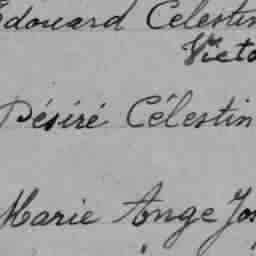 Edouard Celestin
Désiré Célestin
Marie Ange